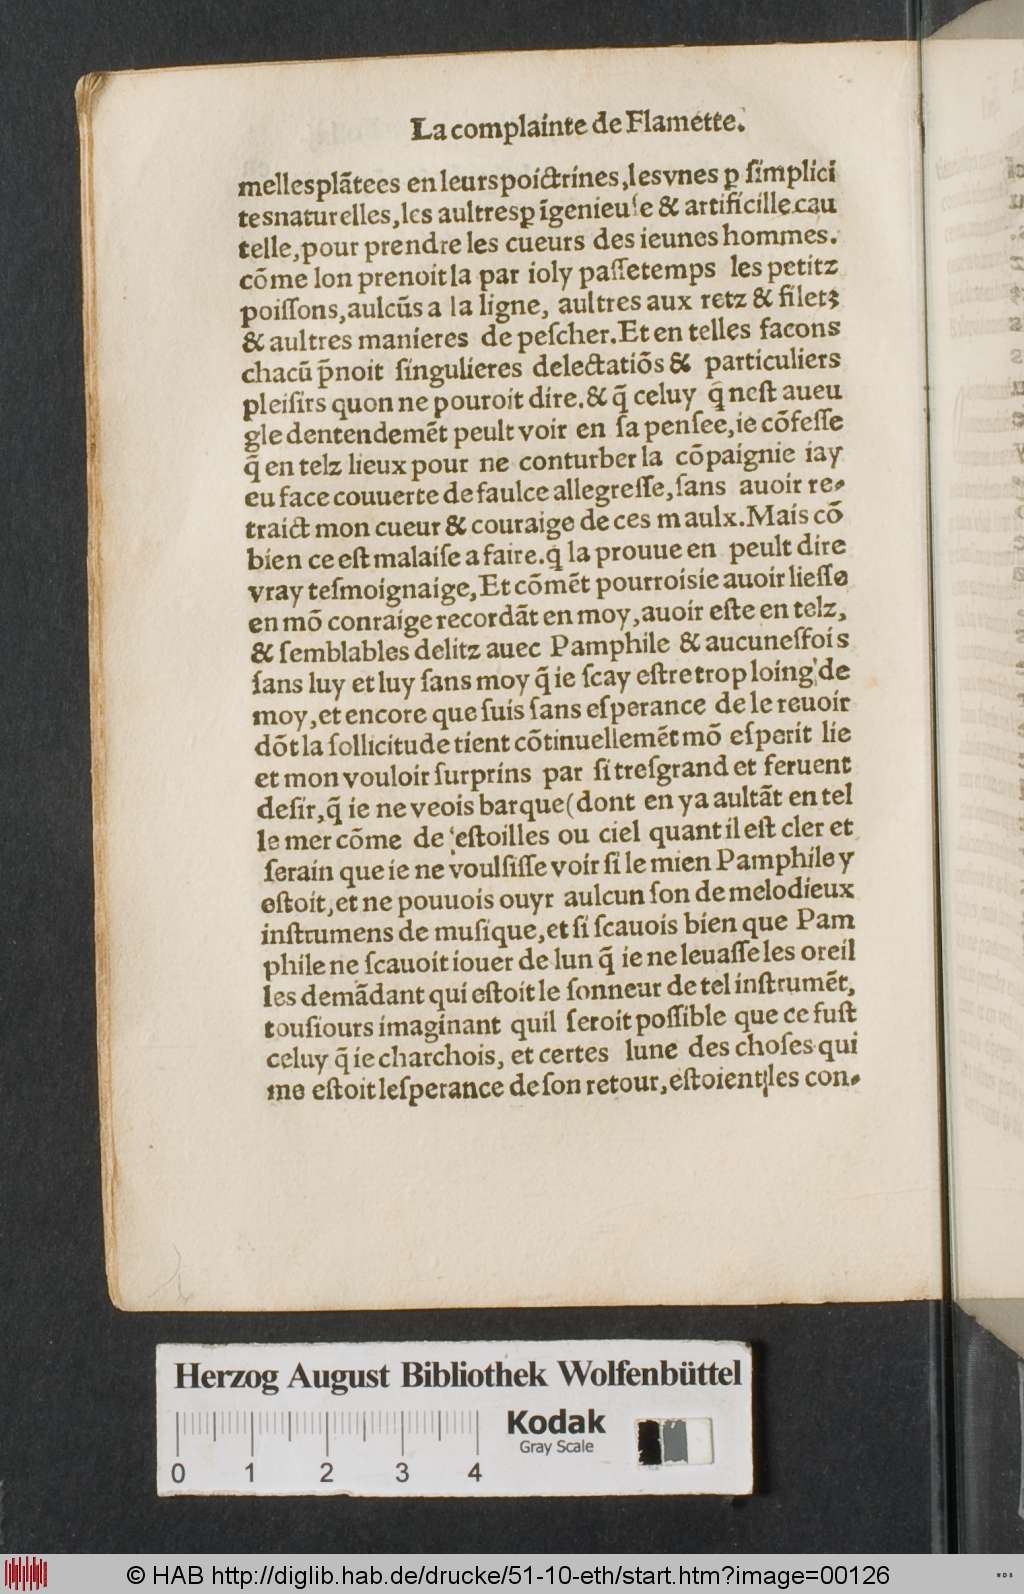 La complainte de Flamette.
mellesplãtees en leurspoictrines,lesvnes ꝑ ſimplici
tesnaturelles,les aultresꝑ ĩgenieuſe & artificille cau
telle,pour prendre les cueurs des ieunes hommes.
cõme lon prenoit la par ioly paſſetemps les petitz
poiſſons,aulcũs a la ligne, aultres aux retz & filetz
& aultres manieres de peſcher.Et en telles facons
chacũ p̃noit ſingulieres delectatiõs & particuliers
pleiſirs quon ne pouroit dire.& q̃ celuy q̃ neſt aueu
gle dentendemẽt peult voir en ſa penſee,ie cõfeſſe
q̃ en telz lieux pour ne conturber la cõpaignie iay
eu face couuerte de faulce allegreſſe,ſans auoir re-
traict mon cueur & couraige de ces maulx.Mais cõ
bien ce eſt malaiſe a faire.q̃ la prouue en peult dire
vray teſmoignaige,Et cõmẽt pourroisie auoir lieſſe
en mõ conraige recordãt en moy,auoir eſte en telz,
& ſemblables delitz auec Pamphile & aucuneſfois
ſans luy et luy ſans moy q̃ ie ſcay eſtre trop loing de
moy,et encore que ſuis ſans eſperance de le reuoir
dõt la ſollicitude tient cõtinuellemẽt mõ eſperit lie
et mon vouloir ſurprins par ſi treſgrand et feruent
deſir,q̃ ie ne veois barque(dont en ya aultãt en tel
le mer cõme de eſtoilles ou ciel quant il eſt cler et
ſerain que ie ne voulſiſſe voir ſi le mien Pamphile y
eſtoit,et ne pouuois ouyr aulcun ſon de melodieux
inſtrumens de muſique,et ſi ſcauois bien que Pam
phile ne ſcauoit iouer de lun q̃ ie ne leuaſſe les oreil
les demãdant qui eſtoit le ſonneur de tel inſtrumẽt,
touſiours imaginant quil ſeroit poſſible que ce fuſt
celuy q̃ ie charchois, et certes lune des choſes qui
me eſtoit leſperance de ſon retour,eſtoient les con-
Herzog August Bibliothek Wolfenbüttel
Kodak
Gray Scale
0 1 2 3 4
© HAB http://diglib.hab.de/drucke/51-10-eth/start.htm?image=00126